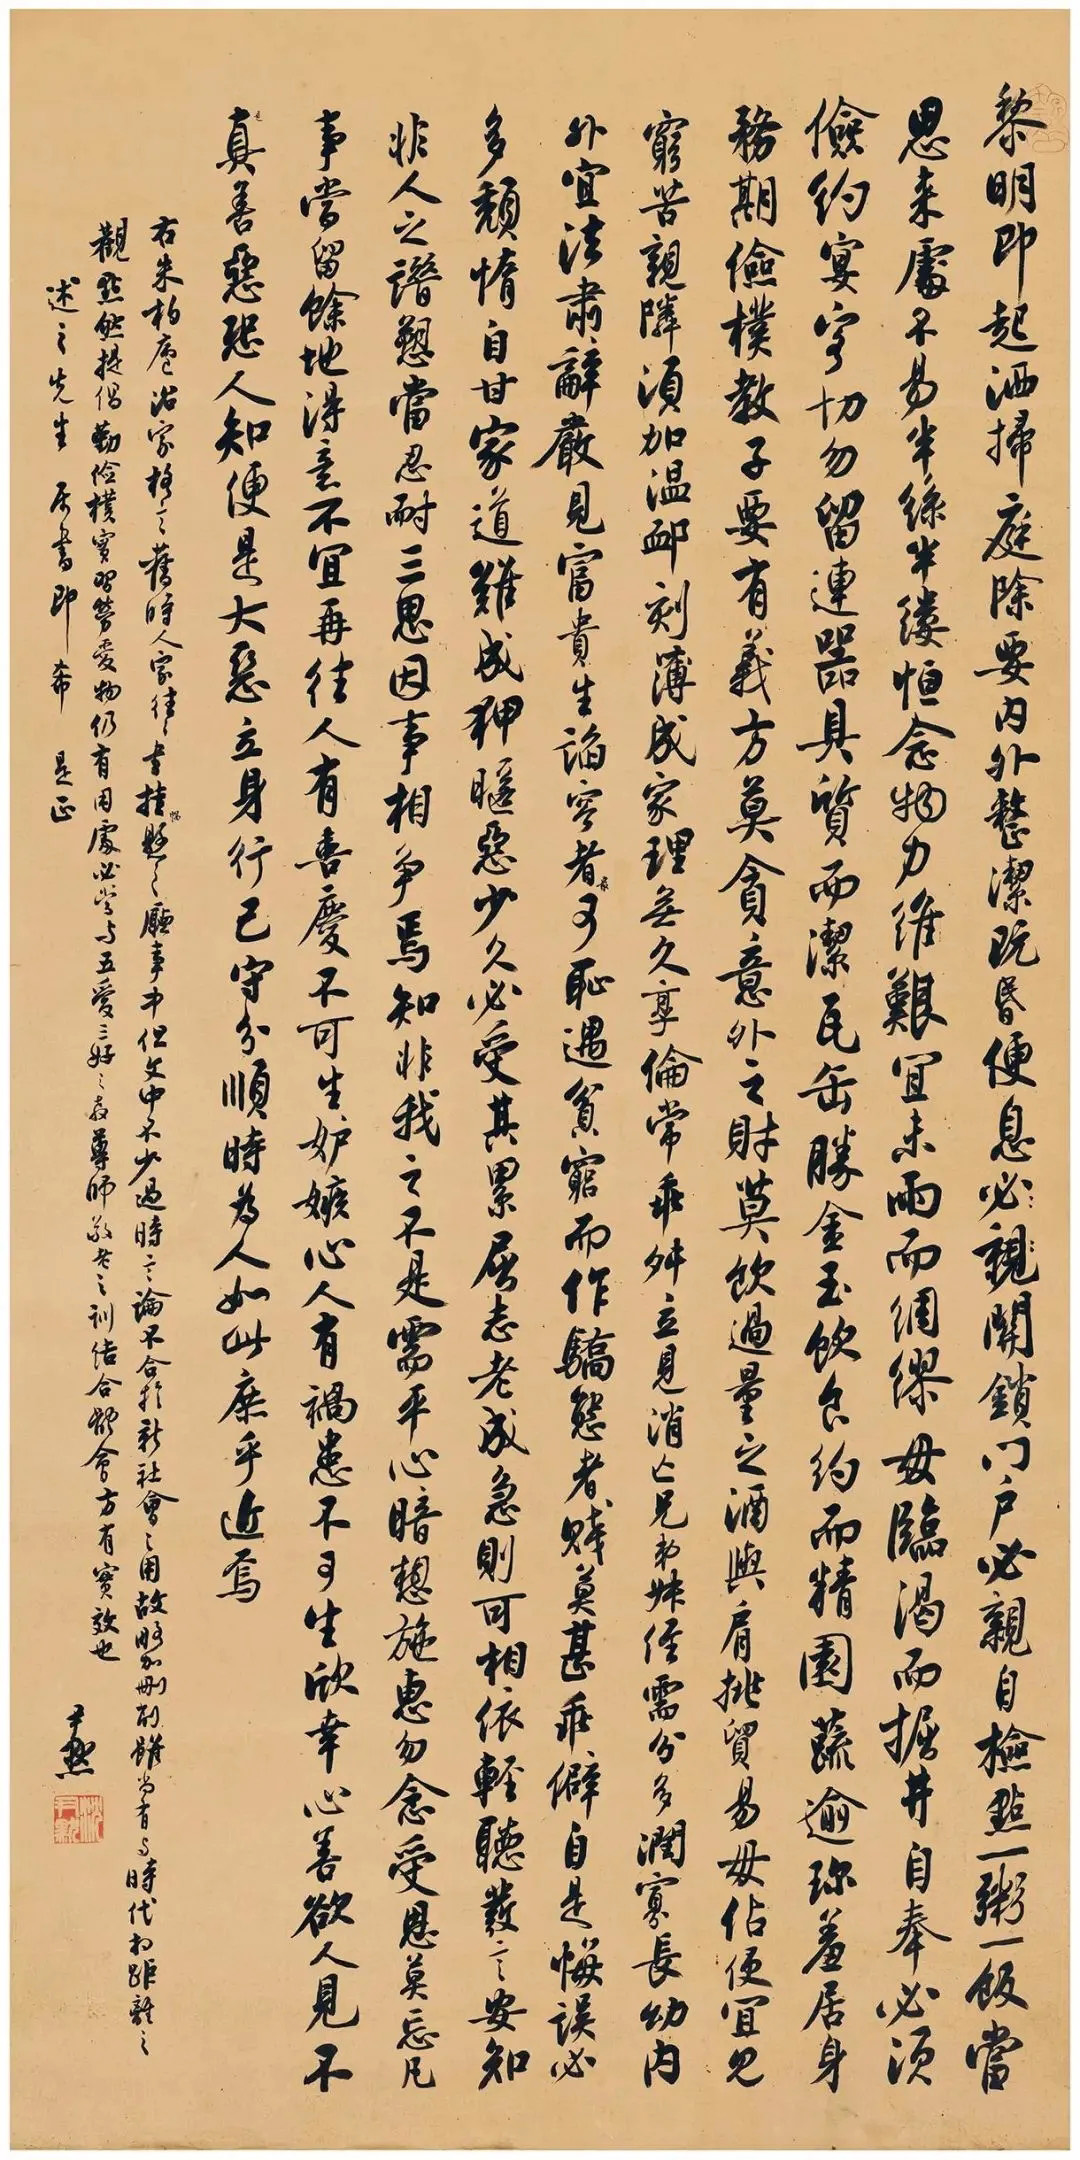 黎明即起洒掃庭除要内外整潔既昏便息必親關鎖门户必親自檢點一粥一飯當
思来處不易半絲半縷恒念物力維艱宜未雨而綢繆毋臨渴而掘井自奉必須
儉約宴客切勿留連器具質而潔瓦缶勝金玉飲食約而精園蔬逾珍羞居身
務期儉樸教子要有義方莫貪意外之財莫飲過量之酒與肩挑貿易毋佔便宜見
窮苦親隣須加温卹刻薄成家理無久享倫常乖舛立見消亡兄弟叔侄需分多潤寡長幼内
外宜法肅辭嚴見富貴生諂容者最可恥遇貧窮而作驕態者賤莫甚乖僻自是悔誤必
多頹惰自甘家道難成狎暱惡少久必受其累屈志老成急則可相依輕聽發言安知
非人之譖愬當忍耐三思因事相争焉知非我之不是需平心暗想施惠勿念受恩莫忘凡
事當留餘地得意不宜再往人有喜慶不可生妒嫉心人有禍患不可生欣幸心善欲人見不
是真善惡恐人知便是大惡立身行己守分順時為人如此庶乎近焉
右朱柏廬治家格言舊時人家往往書挂懸之廳事中但文中不少過時言論不合於新社會之用故略加刪削雖尚有与時代相距離之
觀點然提倡勤儉樸實習勞愛物仍有用處必当与五愛三好之教尊師敬老之訓結合體會方有實效也
述之先生 属書即希 是正
尹默
沈尹默